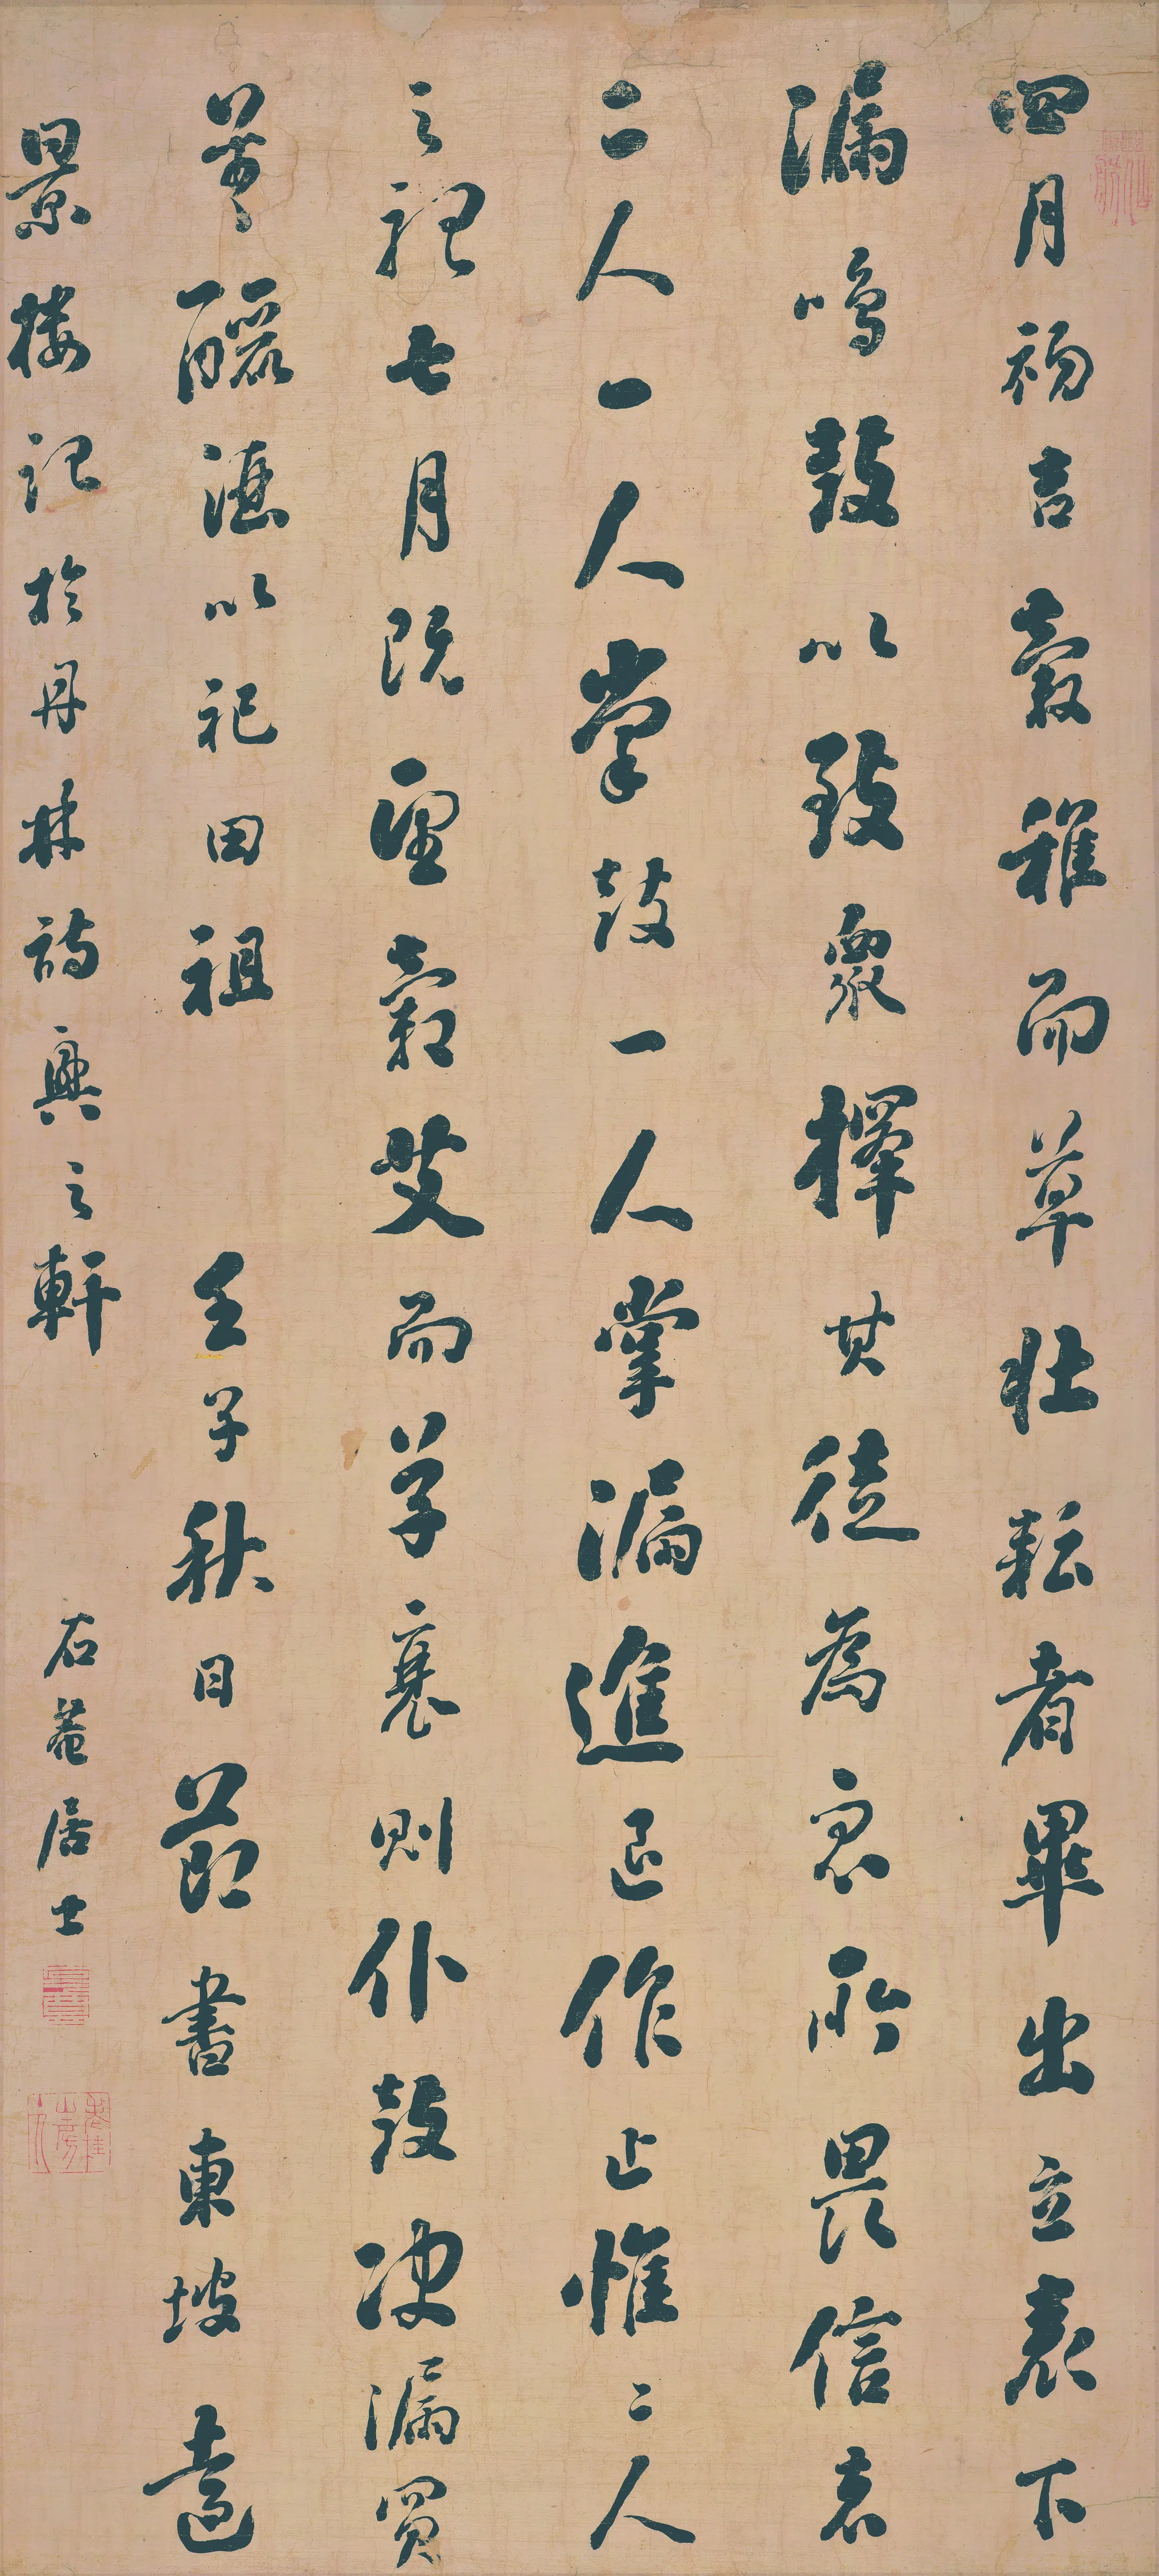 四月初吉穀稚而草壯耘者畢出立表下
漏鳴鼓以致眾擇其徒為衆所畏信者
二人一人掌鼓一人掌漏進退作止惟二人
之聽七月既望穀艾而草衰則仆鼓決漏買
羊釃酒以祀田祖 壬子秋日節書東坡遠
景樓記於丹林詩興之軒 石菴居士